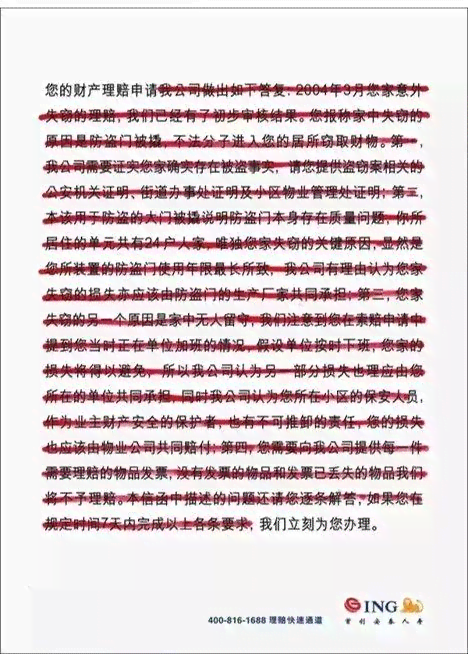 您的财产理赔申请我公司做出如下答复:2004年3月您家意外
失窃的理赔,我们已经有了初步审核结果。您报称家中失窃的
原因是防盗门被撬,不法分子进入您的居所窃取财物。第一,
我公司需要证实您家确实存在被盗事实,请您提供盗窃案相关的
公安机关证明、街道办事处证明及小区物业管理处证明;第二,
本该用于防盗的大门被撬说明防盗门本身存在质量问题,你所
居住的单元共有24户人家,唯独您家失窃的关键原因,显然是
您所装置的防盗门使用年限最长所致,我公司有理由认为您家
失窃的损失亦应该由防盗门的生产厂家共同承担;第三,您家
失窃的另一个原因是家中无人留守,我们注意到您在索赔申请中
提到您当时正在单位加班的情况,假设单位按时下班,您家的
损失将得以避免,所以我公司认为另一部分损失也理应由您
所在的单位共同承担,同时我公司认为您所在小区的保安人员,
作为业主财产安全的保护者,也有不可推卸的责任,您的损失
也应该由物业公司共同赔付;第四,您需要向我公司提供每一件
需要理赔的物品发票,没有发票的物品和发票已丢失的物品我们
将不予理赔。本信函中描述的问题还请您逐条解答,如果您在
规定时间7天内完成以上各条要求,我们立刻为您办理。
ING
400-816-1688 理赔快速通道
首创安泰人寿